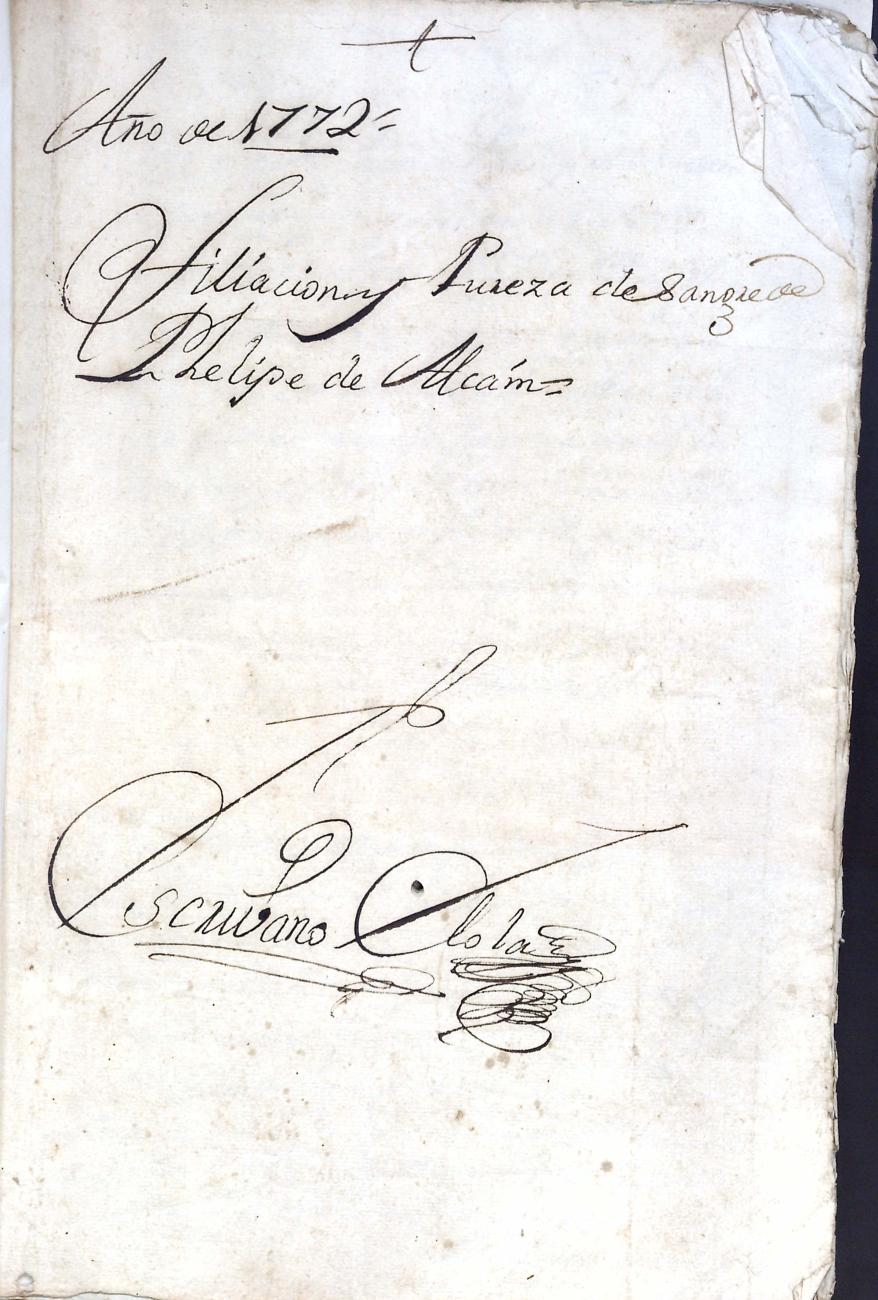 Año de 1772=
Filiacion y Pureza de Sangre de
Phelipe de Alcáin=
Escrivano Elola